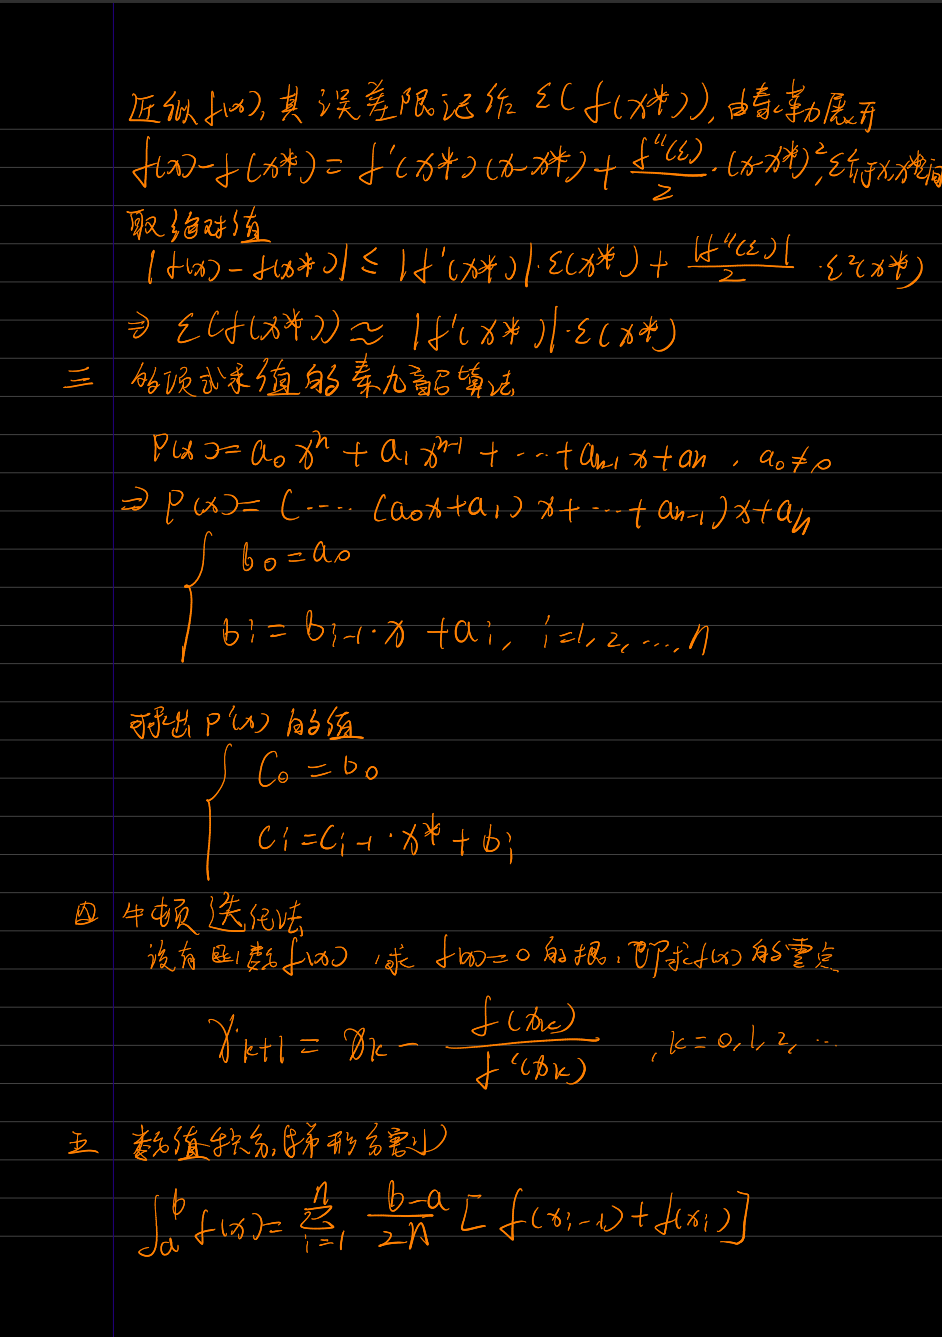 近似f(x),其误差限记作 ε(f(x*)),由泰勒展开
f(x)-f(x*)=f'(x*)(x-x*)+f''(ξ)/2·(x-x*)²,ξ介于x,x*间
取绝对值
|f(x)-f(x*)|≤|f'(x*)|·ε(x*)+|f''(ξ)|/2·ε²(x*)
⇒ ε(f(x*))≈|f'(x*)|·ε(x*)
三 多项式求值的秦九韶算法
P(x)=a₀xⁿ+a₁xⁿ⁻¹+···+aₙ₋₁x+aₙ, a₀≠0
⇒ P(x)=(····(a₀x+a₁)x+···+aₙ₋₁)x+aₙ
{ b₀=a₀
bᵢ=bᵢ₋₁·x+aᵢ, i=1,2,...,n
可求出P'(x)的值
{ C₀=b₀
Cᵢ=Cᵢ₋₁·x*+bᵢ
四 牛顿迭代法
设有函数f(x),求f(x)=0的根,即求f(x)的零点
xₖ₊₁=xₖ-f(xₖ)/f'(xₖ) ,k=0,1,2,...
五 数值积分(梯形分割)
∫ₐᵇf(x)=∑ᵢ₌₁ⁿ (b-a)/2n [f(xᵢ₋₁)+f(xᵢ)]